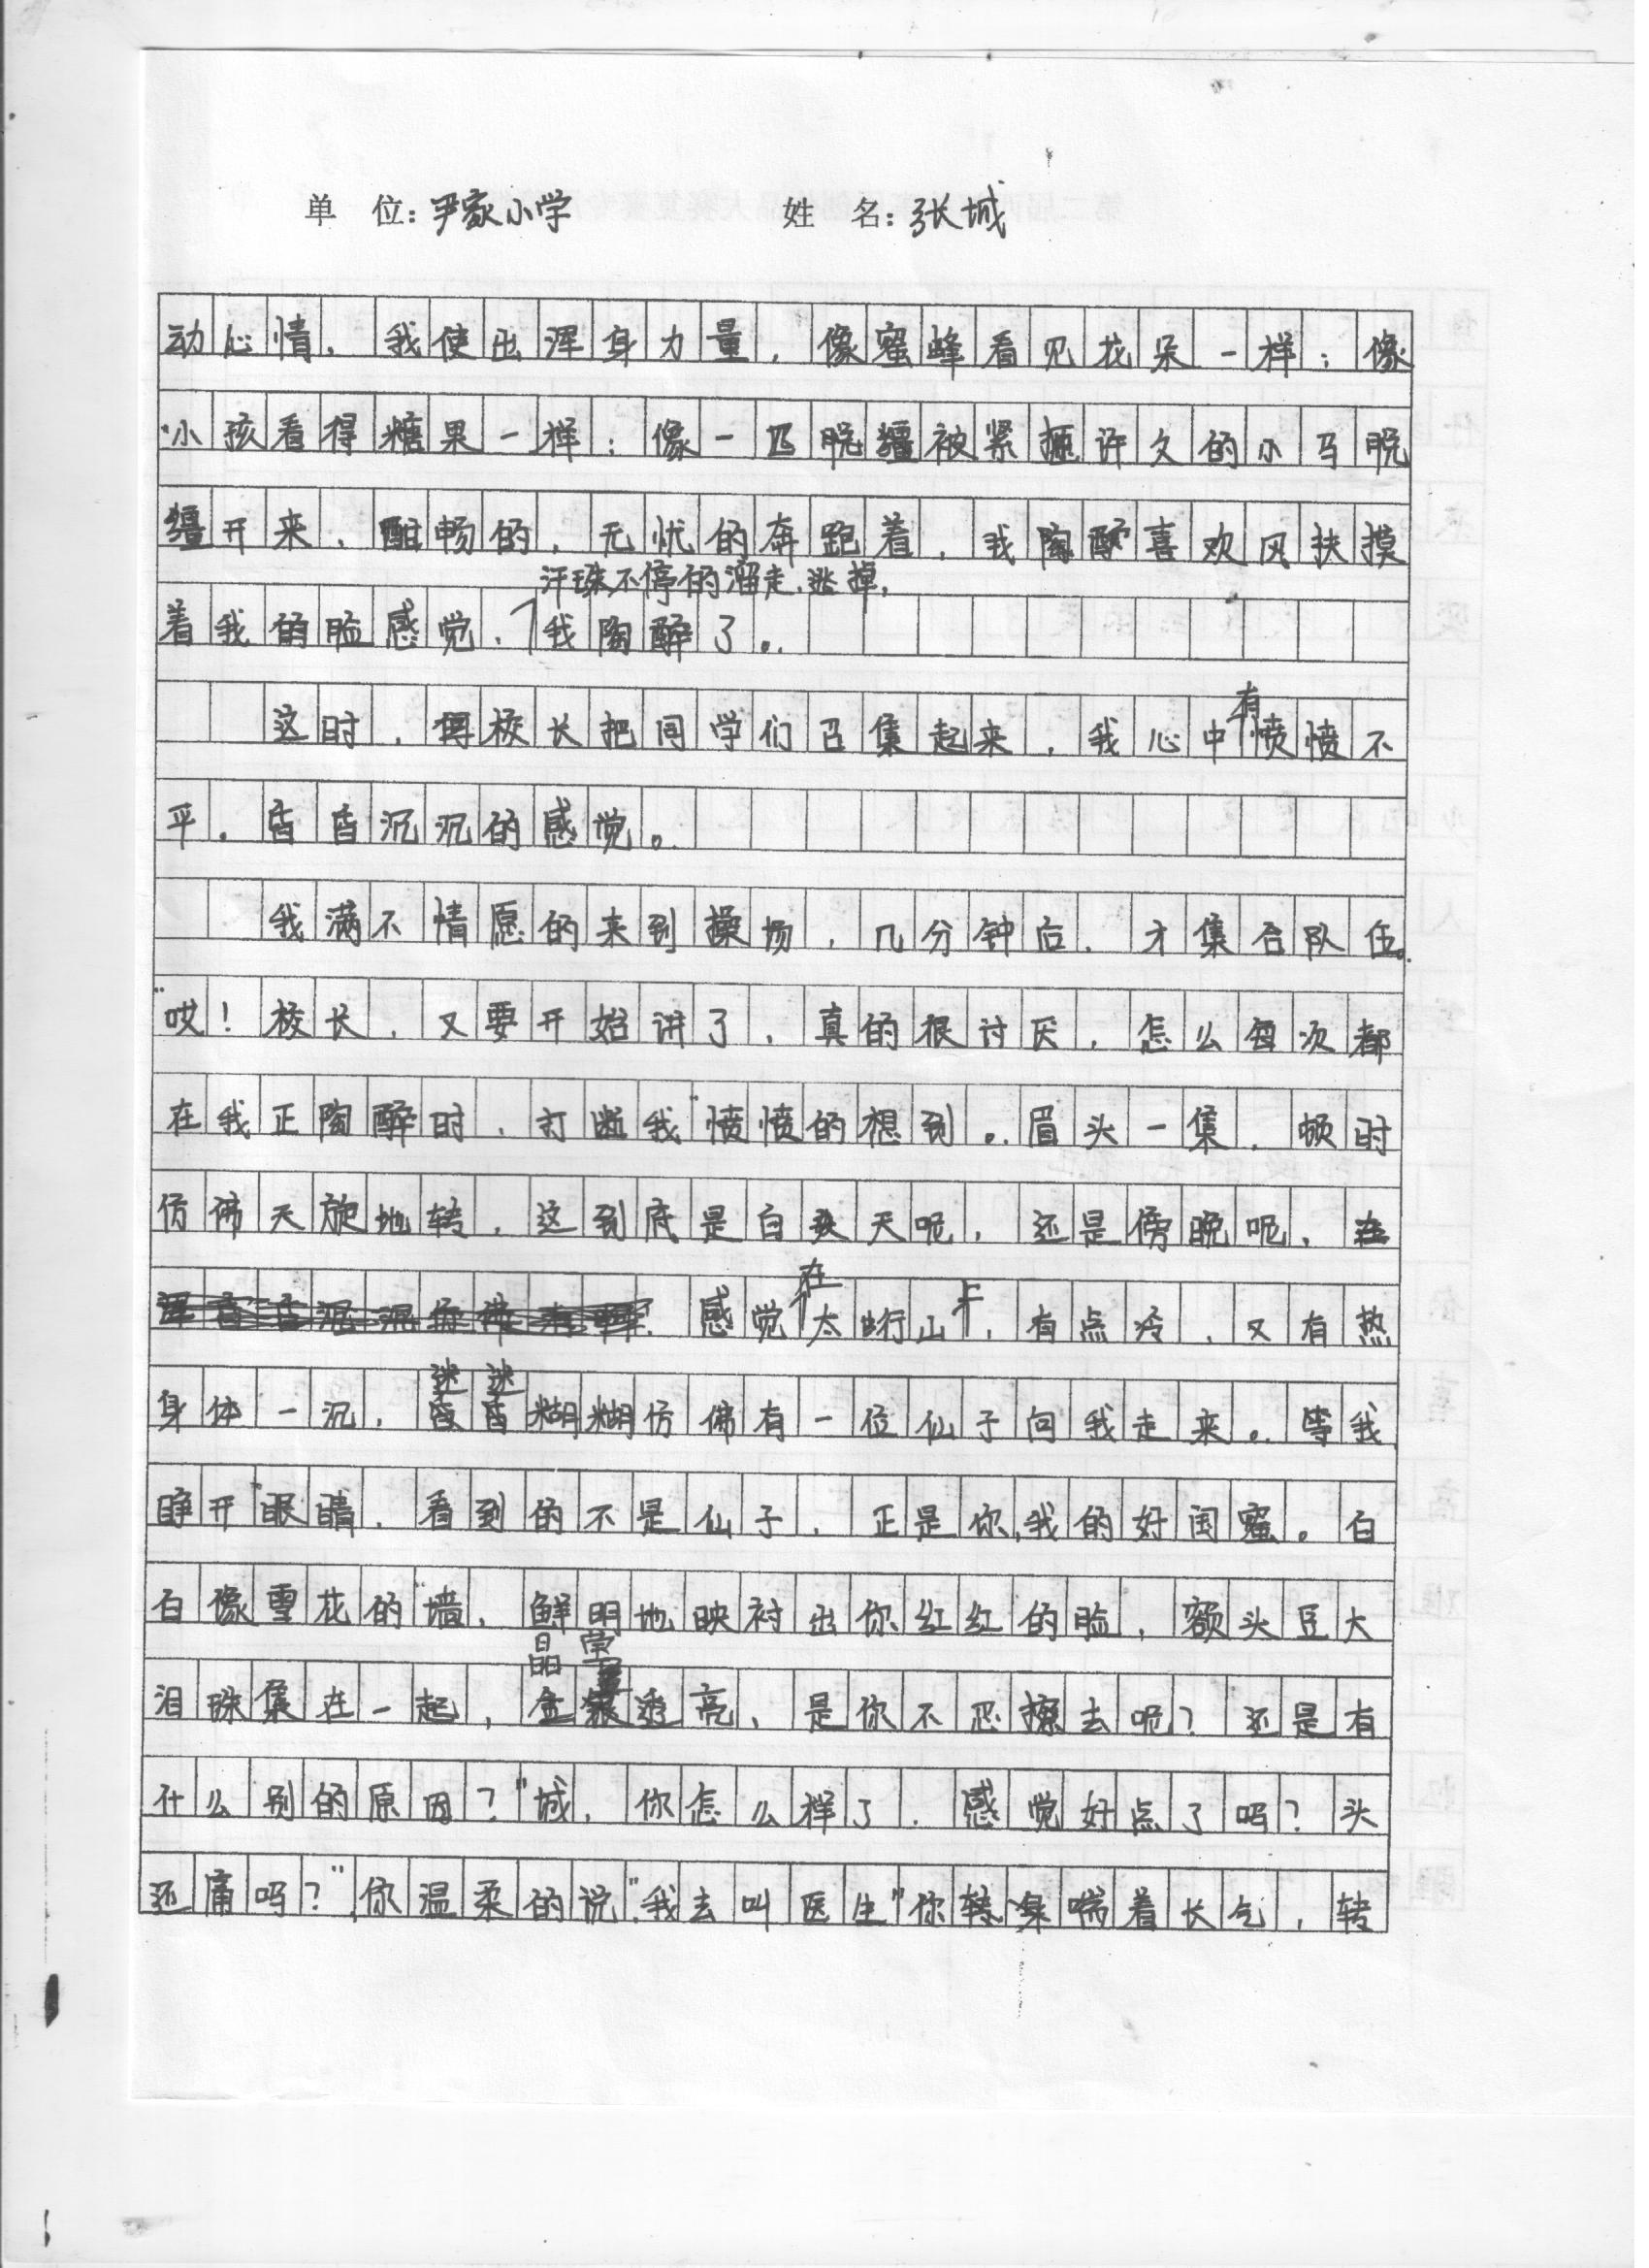 单 位：尹家小学 姓 名：张城
动心情，我使出浑身力量，像蜜蜂看见花朵一样；像
小孩看得糖果一样；像一匹脱缰被紧捆许久的小马脱
缰开来，酣畅的，无忧的奔跑着，我陶醉喜欢风扶摸
汗珠不停的溜走、逃掉，
着我的脸感觉，我陶醉了。
有
这时，校长把同学们召集起来，我心中愤愤不
平，昏昏沉沉的感觉。
我满不情愿的来到操场，几分钟后，才集合队伍。
“哎！校长，又要开始讲了，真的很讨厌，怎么每次都
在我正陶醉时，打断我”愤愤的想到。眉头一集，顿时
仿佛天旋地转，这到底是白天呢，还是傍晚呢，
在 上
感觉太行山，有点冷，又有热
迷迷
身体一沉，昏昏糊糊仿佛有一位仙子向我走来。等我
睁开眼睛，看到的不是仙子，正是你，我的好闺蜜。白
白像雪花的墙，鲜明地映衬出你红红的脸，额头豆大
晶莹
泪珠集在一起，透亮，是你不忍擦去呢？还是有
什么别的原因？“城，你怎么样了，感觉好点了吗？头
还痛吗？”你温柔的说“我去叫医生”你转身喘着长气，转